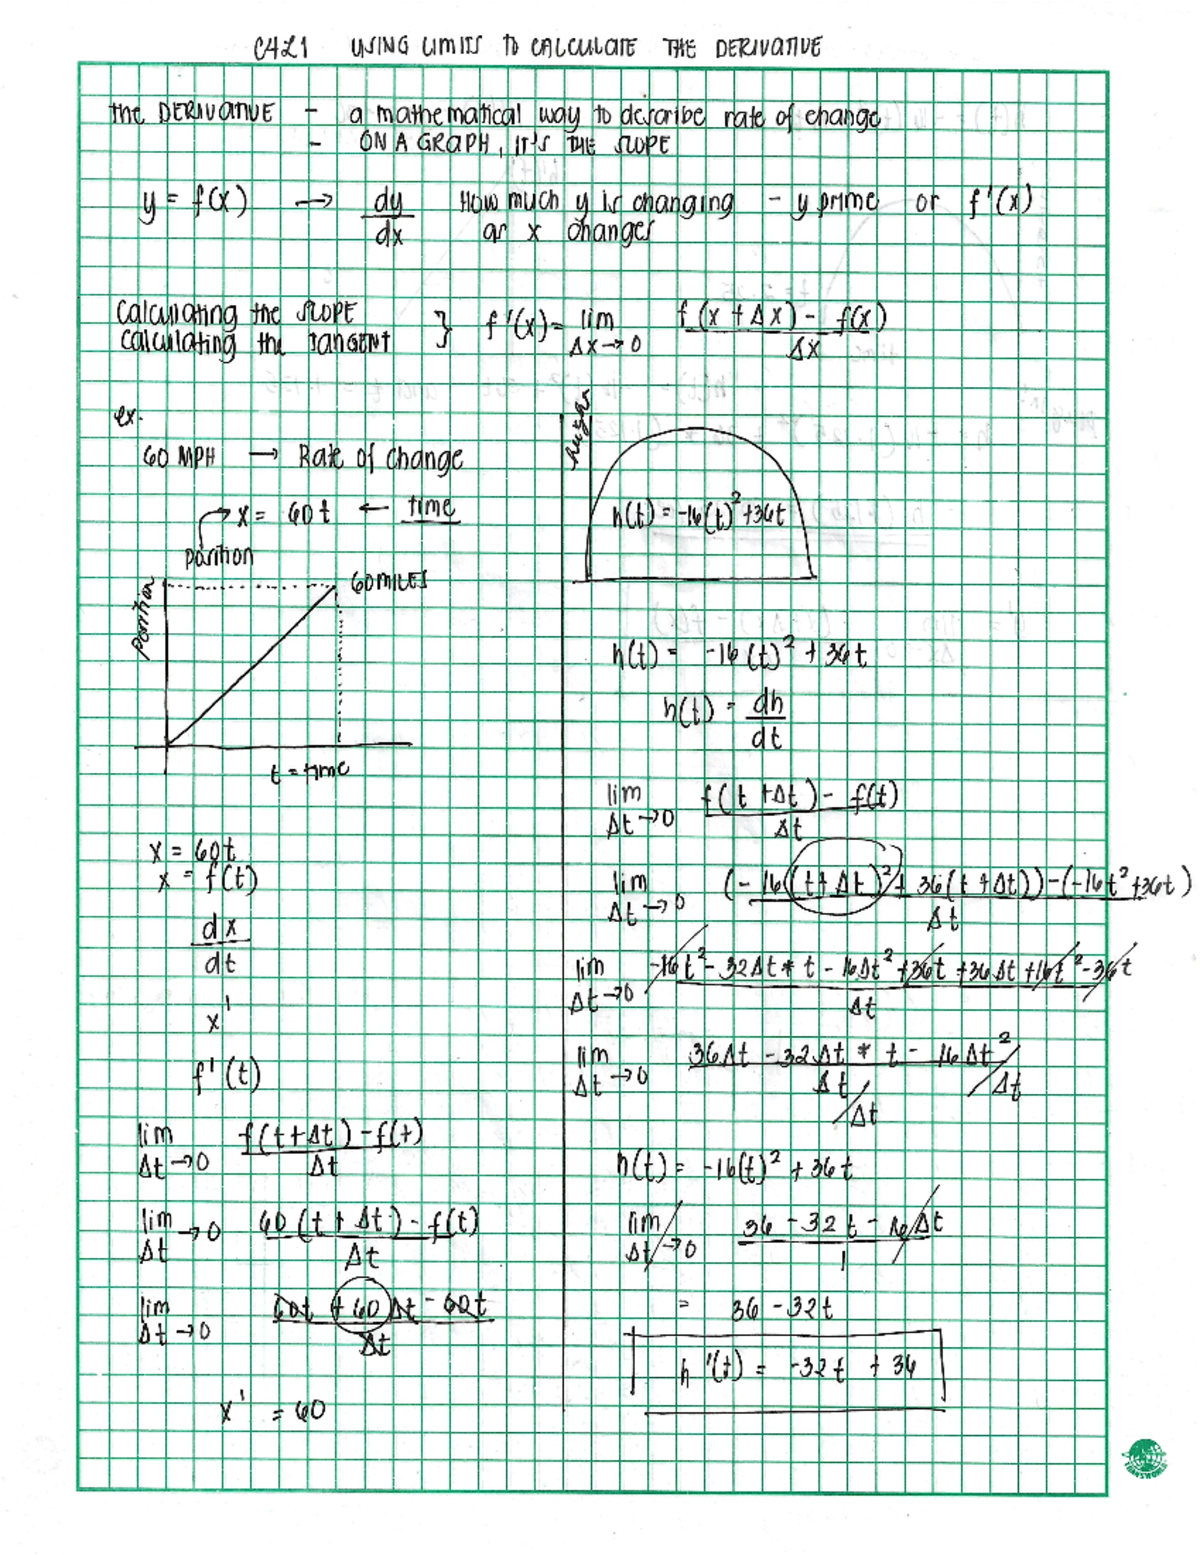 C4L1 USING LIMITS TO CALCULATE THE DERIVATIVE
the DERIVATIVE - a mathematical way to describe rate of change
- ON A GRAPH, IT'S THE SLOPE
y = f(x) → dy/dx How much y is changing as x changes - y prime or f'(x)
Calculating the SLOPE
Calculating the TANGENT } f'(x) = lim Δx→0 f(x + Δx) - f(x) / Δx
ex.
60 MPH → Rate of change
x = 60t ← time
position
position
60 MILES
t = time
x = 60t
x = f(t)
dx/dt
x'
f'(t)
lim Δt→0 f(t+Δt) - f(t) / Δt
lim Δt →0 60(t + Δt) - f(t) / Δt
lim Δt→0 60t + 60Δt - 60t / Δt
x' = 60
height
h(t) = -16(t)² + 36t
h(t) = -16(t)² + 36t
h(t) = dh/dt
lim Δt→0 f(t + Δt) - f(t) / Δt
lim Δt→0 (-16(t + Δt)² + 36(t + Δt)) - (-16t² + 36t) / Δt
lim Δt→0 -16t² - 32Δt * t - 16Δt² + 36t + 36Δt + 16t² - 36t / Δt
lim Δt→0 36Δt - 32Δt * t - 16Δt² / Δt /Δt /Δt
h(t) = -16(t)² + 36t
lim Δt→0 36 - 32t - 16Δt / 1
= 36 - 32t
h'(t) = -32t + 36
TRANSWORLD